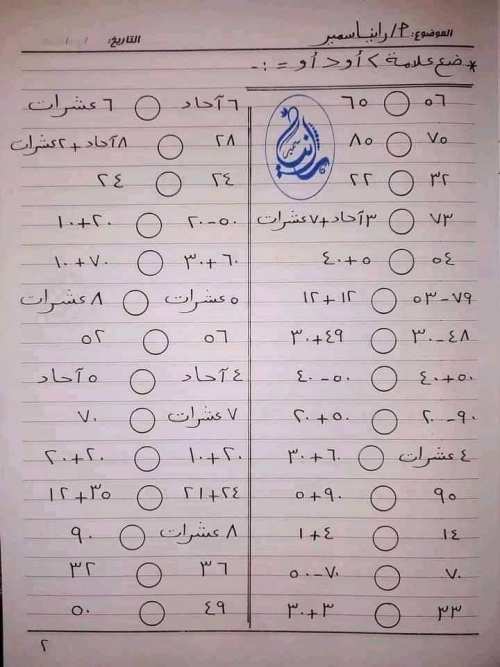 الموضوع: م/ رانيا سمير التاريخ: / /
* ضع علامة < أو > أو = :-
رانيا سمير
٥٦ ٦٥
٧٥ ٨٥
٣٢ ٢٢
٧٣ ٣ آحاد + ٧ عشرات
٥٤ ٥ + ٤٠
٧٩ - ٥٣ ١٢ + ١٢
٤٨ - ٣٠ ٤٩ + ٣٠
٥٠ + ٤٠ ٥٠ - ٤٠
٩٠ - ٢٠ ٥٠ + ٢٠
٤ عشرات ٦٠ + ٣٠
٩٥ ٩٠ + ٥
١٤ ٤ + ١
٧٠ ٧٠ - ٥٠
٣٣ ٣ + ٣٠
٦ آحاد ٦ عشرات
٢٨ ٨ آحاد + ٢ عشرات
٢٤ ٢٤
٥٠ - ٢٠ ٢٠ + ١٠
٦٠ + ٣٠ ٧٠ + ١٠
٥ عشرات ٨ عشرات
٥٦ ٥٢
٤ آحاد ٥ آحاد
٧ عشرات ٧٠
٢٠ + ١٠ ٢٠ + ٢٠
٢٤ + ٢١ ٣٥ + ١٢
٨ عشرات ٩٠
٣٦ ٣٢
٤٩ ٥٠
٢